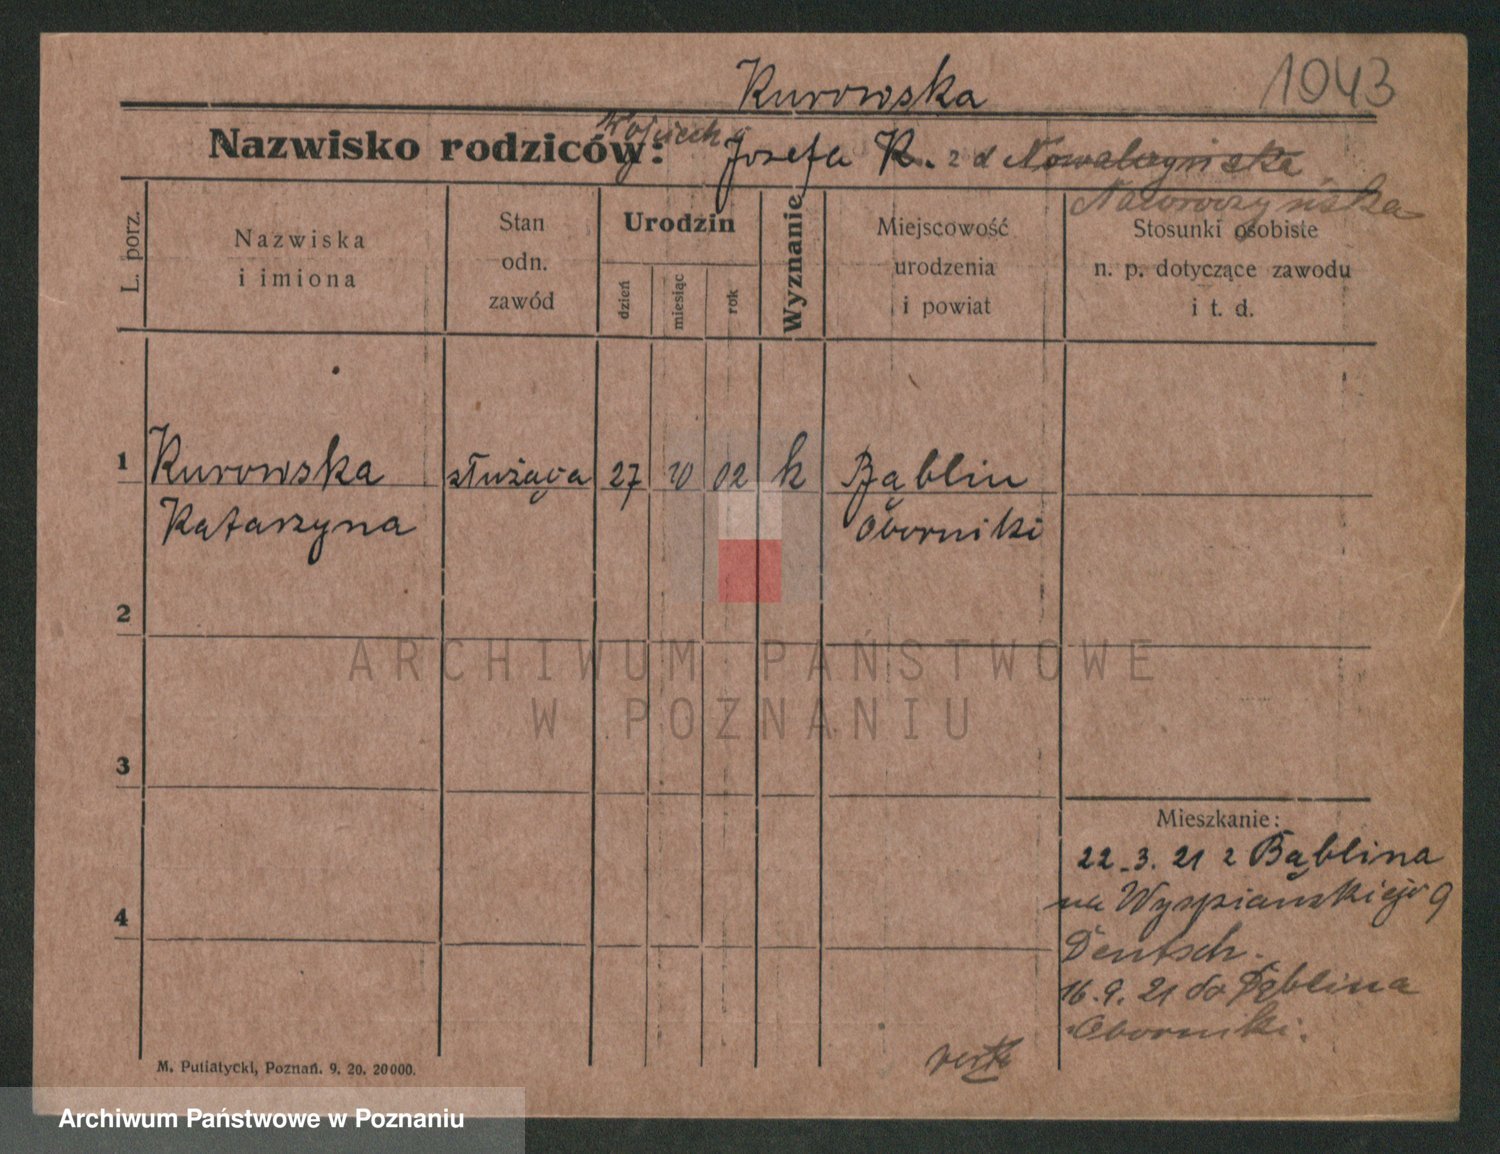 Kurowska 1043
Nazwisko rodziców: Wojciech Józefa K. z d Nowaczyńska
Naworoczyńska
L. porz.
Nazwiska
i imiona
Stan
odn.
zawód
Urodzin
dzień
miesiąc
rok
Wyznanie
Miejscowość
urodzenia
i powiat
Stosunki osobiste
n. p. dotyczące zawodu
i t. d.
1 Kurowska służąca 27 10 02 k Bąblin
Katarzyna Oborniki
2
ARCHIWUM PAŃSTWOWE
W POZNANIU
3
Mieszkanie:
22.3.21 z Bąblina
na Wyspiańskiego 9
4
Deutsch.
16.9.21 do Bąblina
Oborniki.
M. Putiatycki, Poznań. 9. 20. 20000.
Archiwum Państwowe w Poznaniu